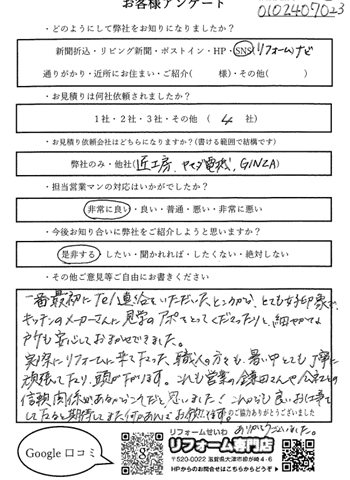 お客様アンケート
0102407023
・どのようにして弊社をお知りになりましたか？
新聞折込・リビング新聞・ポストイン・HP・SNS(リフォームナビ
通りがかり・近所にお住まい・ご紹介( 様)・その他( )
・お見積りは何社依頼されましたか？
1社・2社・3社・その他 ( 4 社)
・お見積り依頼会社はどちらになりますか？(書ける範囲で結構です)
弊社のみ・他社(匠工房、ヤマダ電機、GINZA)
・担当営業マンの対応はいかがでしたか？
非常に良い・良い・普通・悪い・非常に悪い
・今後お知り合いに弊社をご紹介しようと思いますか？
是非する・したい・聞かれれば・したくない・絶対しない
・その他ご意見等ご自由にお書きください
一番最初にTel連絡いただいたところから、とても好印象で、
キッチンのメーカーさんに見学のアポをとってくださったりと、細やかな
所も安心しておまかせできました。
実際にリフォームに来て下さった職人の方々も、暑い中とても丁寧に
頑張って下さり、頭が下がります。これも営業の鎌田さんや会社との
信頼関係があるからこそだと思いました！これからも良いお仕事を
して下さると期待してまた何かあればお願いします。
のご協力ありがとうございました
ありがとうございました。
Google 口コミ
リフォームせいわ
リフォーム専門店
〒520-0022 滋賀県大津市柳が崎4-6
HPからのお問合せはこちらからどうぞ